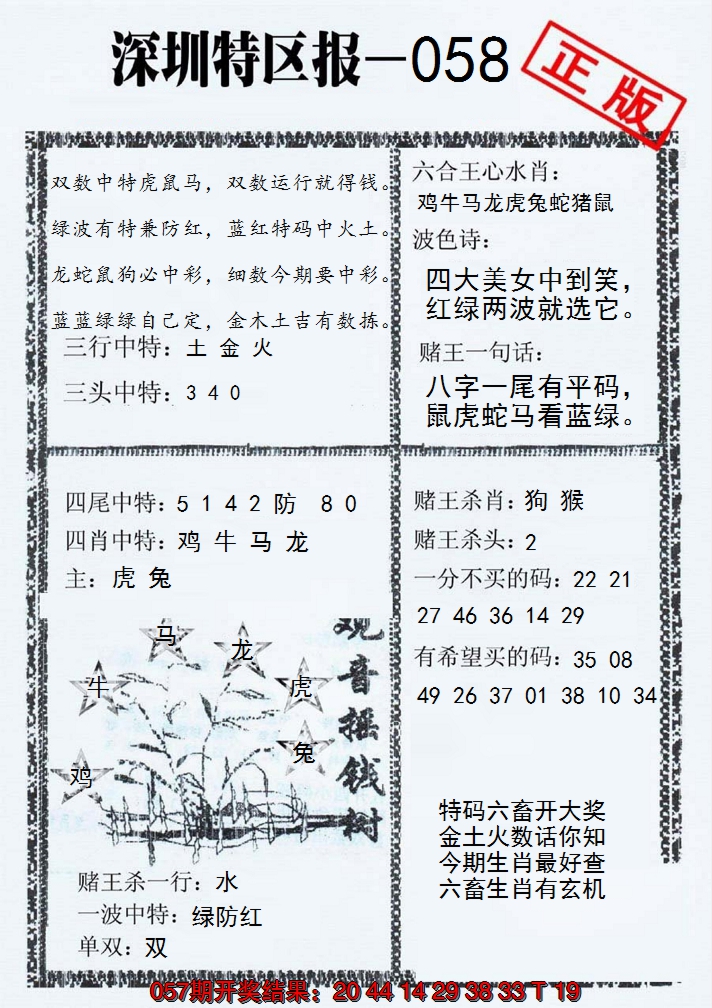 深圳特区报－058
正版
双数中特虎鼠马，双数运行就得钱。
绿波有特兼防红，蓝红特码中火土。
龙蛇鼠狗必中彩，细数今期要中彩。
蓝蓝绿绿自己定，金木土吉有数拣。
三行中特：土 金 火
三头中特：3 4 0
六合王心水肖：
鸡牛马龙虎兔蛇猪鼠
波色诗：
四大美女中到笑，
红绿两波就选它。
赌王一句话：
八字一尾有平码，
鼠虎蛇马看蓝绿。
四尾中特：5 1 4 2 防 8 0
四肖中特：鸡 牛 马 龙
主：虎 兔
观音摇钱树
马
龙
牛
虎
兔
鸡
赌王杀一行：水
一波中特：绿防红
单双：双
赌王杀肖：狗 猴
赌王杀头：2
一分不买的码：22 21
27 46 36 14 29
有希望买的码：35 08
49 26 37 01 38 10 34
特码六畜开大奖
金土火数话你知
今期生肖最好查
六畜生肖有玄机
057期开奖结果：20 44 14 29 38 33 T 19